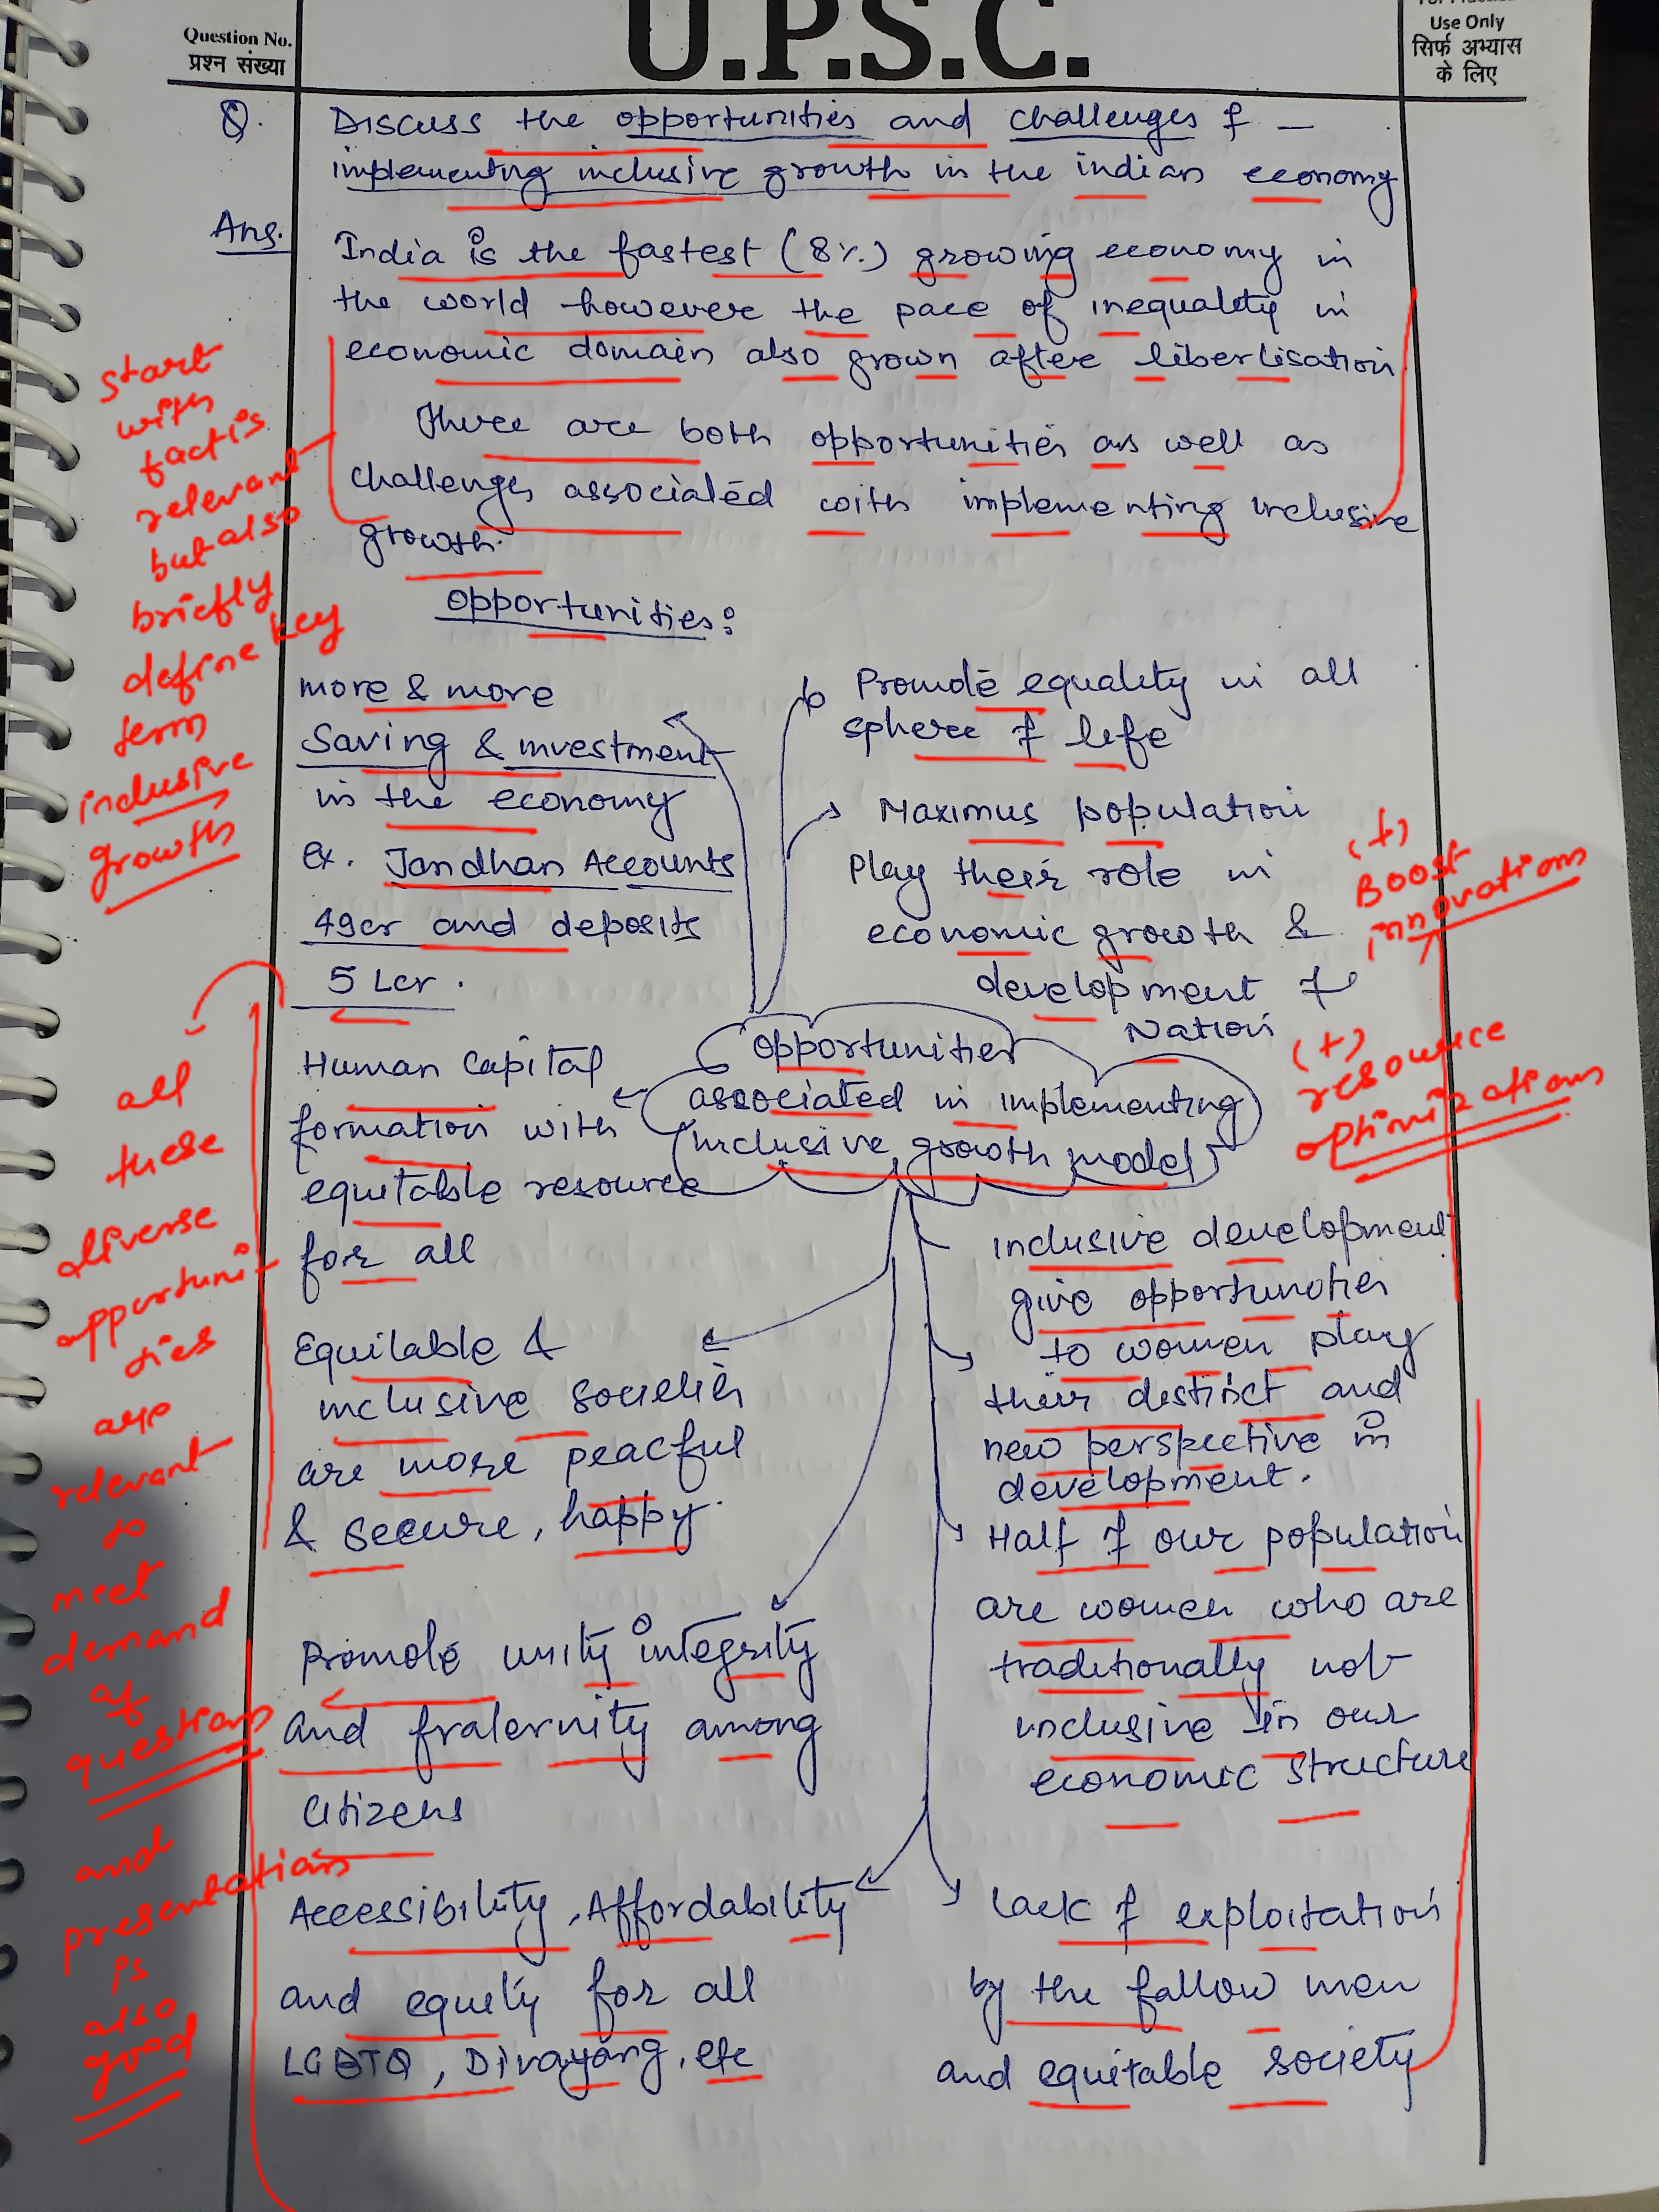 Question No.
प्रश्न संख्या
U.P.S.C.
Use Only
सिर्फ अभ्यास
के लिए
Q. Discuss the opportunities and challenges of –
implementing inclusive growth in the indian economy
Ans. India is the fastest (8%) growing economy in
the world however the pace of inequality in
economic domain also grown after liberlisation
There are both opportunities as well as
challenges associated with implementing inclusive
growth.
start
with
fact is
relevant
but also
briefly
define key
term
inclusive
growth
opportunities:
more & more
Saving & investment
in the economy
ex. Jandhan Accounts
49cr and deposits
5 Lcr.
Promote equality in all
sphere of life
Maximus population
Play their role in
economic growth &
development of
Nation
(+)
Boost
innovations
(+)
resource
optimizations
opportunities
associated in implementing
inclusive growth model
Human Capital
formation with
equitable resource
for all
Equitable &
inclusive societies
are more peacful
& secure, happy.
Promote unity integrity
and fraternity among
Citizens
Accessibility, Affordability
and equity for all
LGBTQ, Divayang, etc
inclusive development
give opportunities
to women play
their distinct and
new perspective in
development.
Half of our population
are women who are
traditionally not
inclusive in our
economic structure
Lack of exploitation
by the fallow men
and equitable society
all
these
diverse
opportuni
ties
are
relevant
to
meet
demand
of
questions
and
presentations
is
also
good